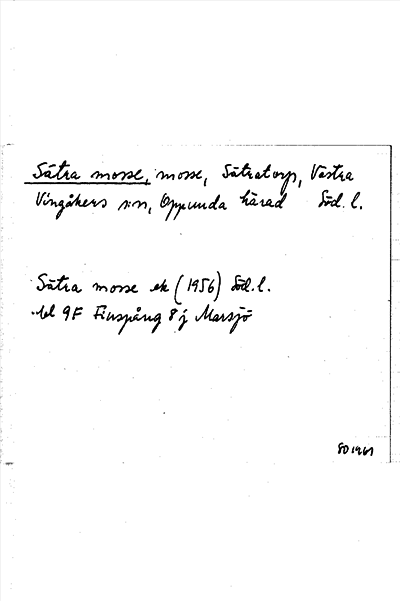 Sätra mosse, mosse, Sätratorp, Västra
Vingåkers s:n, Oppunda härad Söd. l.
Sätra mosse ek (1956) Söd. l.
bl 9F Finspång 8 j Marsjö
SO 1961